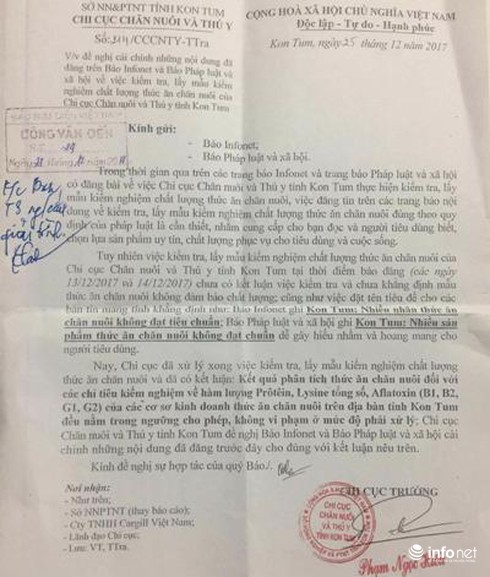 SỞ NN&PTNT TỈNH KON TUM
CHI CỤC CHĂN NUÔI VÀ THÚ Y
Số: /CCCNTY-TTra
V/v đề nghị cải chính những nội dung đã
đăng trên Báo Infonet và Báo Pháp luật và
xã hội về việc kiểm tra, lấy mẫu kiểm
nghiệm chất lượng thức ăn chăn nuôi của
Chi cục Chăn nuôi và Thú y tỉnh Kon Tum
CỘNG HOÀ XÃ HỘI CHỦ NGHĨA VIỆT NAM
Độc lập - Tự do - Hạnh phúc
Kon Tum, ngày 25 tháng 12 năm 2017
CÔNG VĂN ĐẾN
Kính gửi:
- Báo Infonet;
- Báo Pháp luật và xã hội.
Trong thời gian qua trên các trang báo Infonet và trang báo Pháp luật và xã hội
có đăng bài về việc Chi cục Chăn nuôi và Thú y tỉnh Kon Tum thực hiện kiểm tra, lấy
mẫu kiểm nghiệm chất lượng thức ăn chăn nuôi, việc đăng tin trên các trang báo nội
dung về kiểm tra, lấy mẫu kiểm nghiệm chất lượng thức ăn chăn nuôi đúng theo quy
định của pháp luật là cần thiết, nhằm cung cấp cho bạn đọc và người tiêu dùng biết,
chọn lựa sản phẩm uy tín, chất lượng phục vụ cho tiêu dùng và cuộc sống.
Tuy nhiên việc kiểm tra, lấy mẫu kiểm nghiệm chất lượng thức ăn chăn nuôi của
Chi cục Chăn nuôi và Thú y tỉnh Kon Tum tại thời điểm báo đăng (các ngày
13/12/2017 và 14/12/2017) chưa có kết luận việc kiểm tra và chưa khẳng định mẫu
thức ăn chăn nuôi không đảm bảo chất lượng; cũng như việc đặt tên tiêu đề cho các
bản tin mang tính khẳng định như: Báo Infonet ghi Kon Tum: Nhiều nhãn thức ăn
chăn nuôi không đạt tiêu chuẩn; Báo Pháp luật và xã hội ghi Kon Tum: Nhiều sản
phẩm thức ăn chăn nuôi không đạt chuẩn dễ gây hiểu nhầm và hoang mang cho
người tiêu dùng.
Nay, Chi cục đã xử lý xong việc kiểm tra, lấy mẫu kiểm nghiệm chất lượng
thức ăn chăn nuôi và đã có kết luận: Kết quả phân tích thức ăn chăn nuôi đối với
các chỉ tiêu kiểm nghiệm về hàm lượng Prôtêin, Lysine tổng số, Aflatoxin (B1, B2,
G1, G2) của các cơ sơ kinh doanh thức ăn chăn nuôi trên địa bàn tỉnh Kon Tum
đều nằm trong ngưỡng cho phép, không vi phạm ở mức độ phải xử lý; Chi cục
Chăn nuôi và Thú y tỉnh Kon Tum đề nghị Báo Infonet và Báo Pháp luật và xã hội cải
chính những nội dung đã đăng trước đây cho đúng với kết luận nêu trên.
Kính đề nghị sự hợp tác của quý Báo./.
Nơi nhận:
- Như trên;
- Sở NNPTNT (thay báo cáo);
- Cty TNHH Cargill Việt Nam;
- Lãnh đạo Chi cục;
- Lưu: VT, TTra.
CHI CỤC TRƯỞNG
CHI CỤC
CHĂN NUÔI
VÀ THÚ Y
TỈNH KON TUM
Phạm Ngọc
infonet